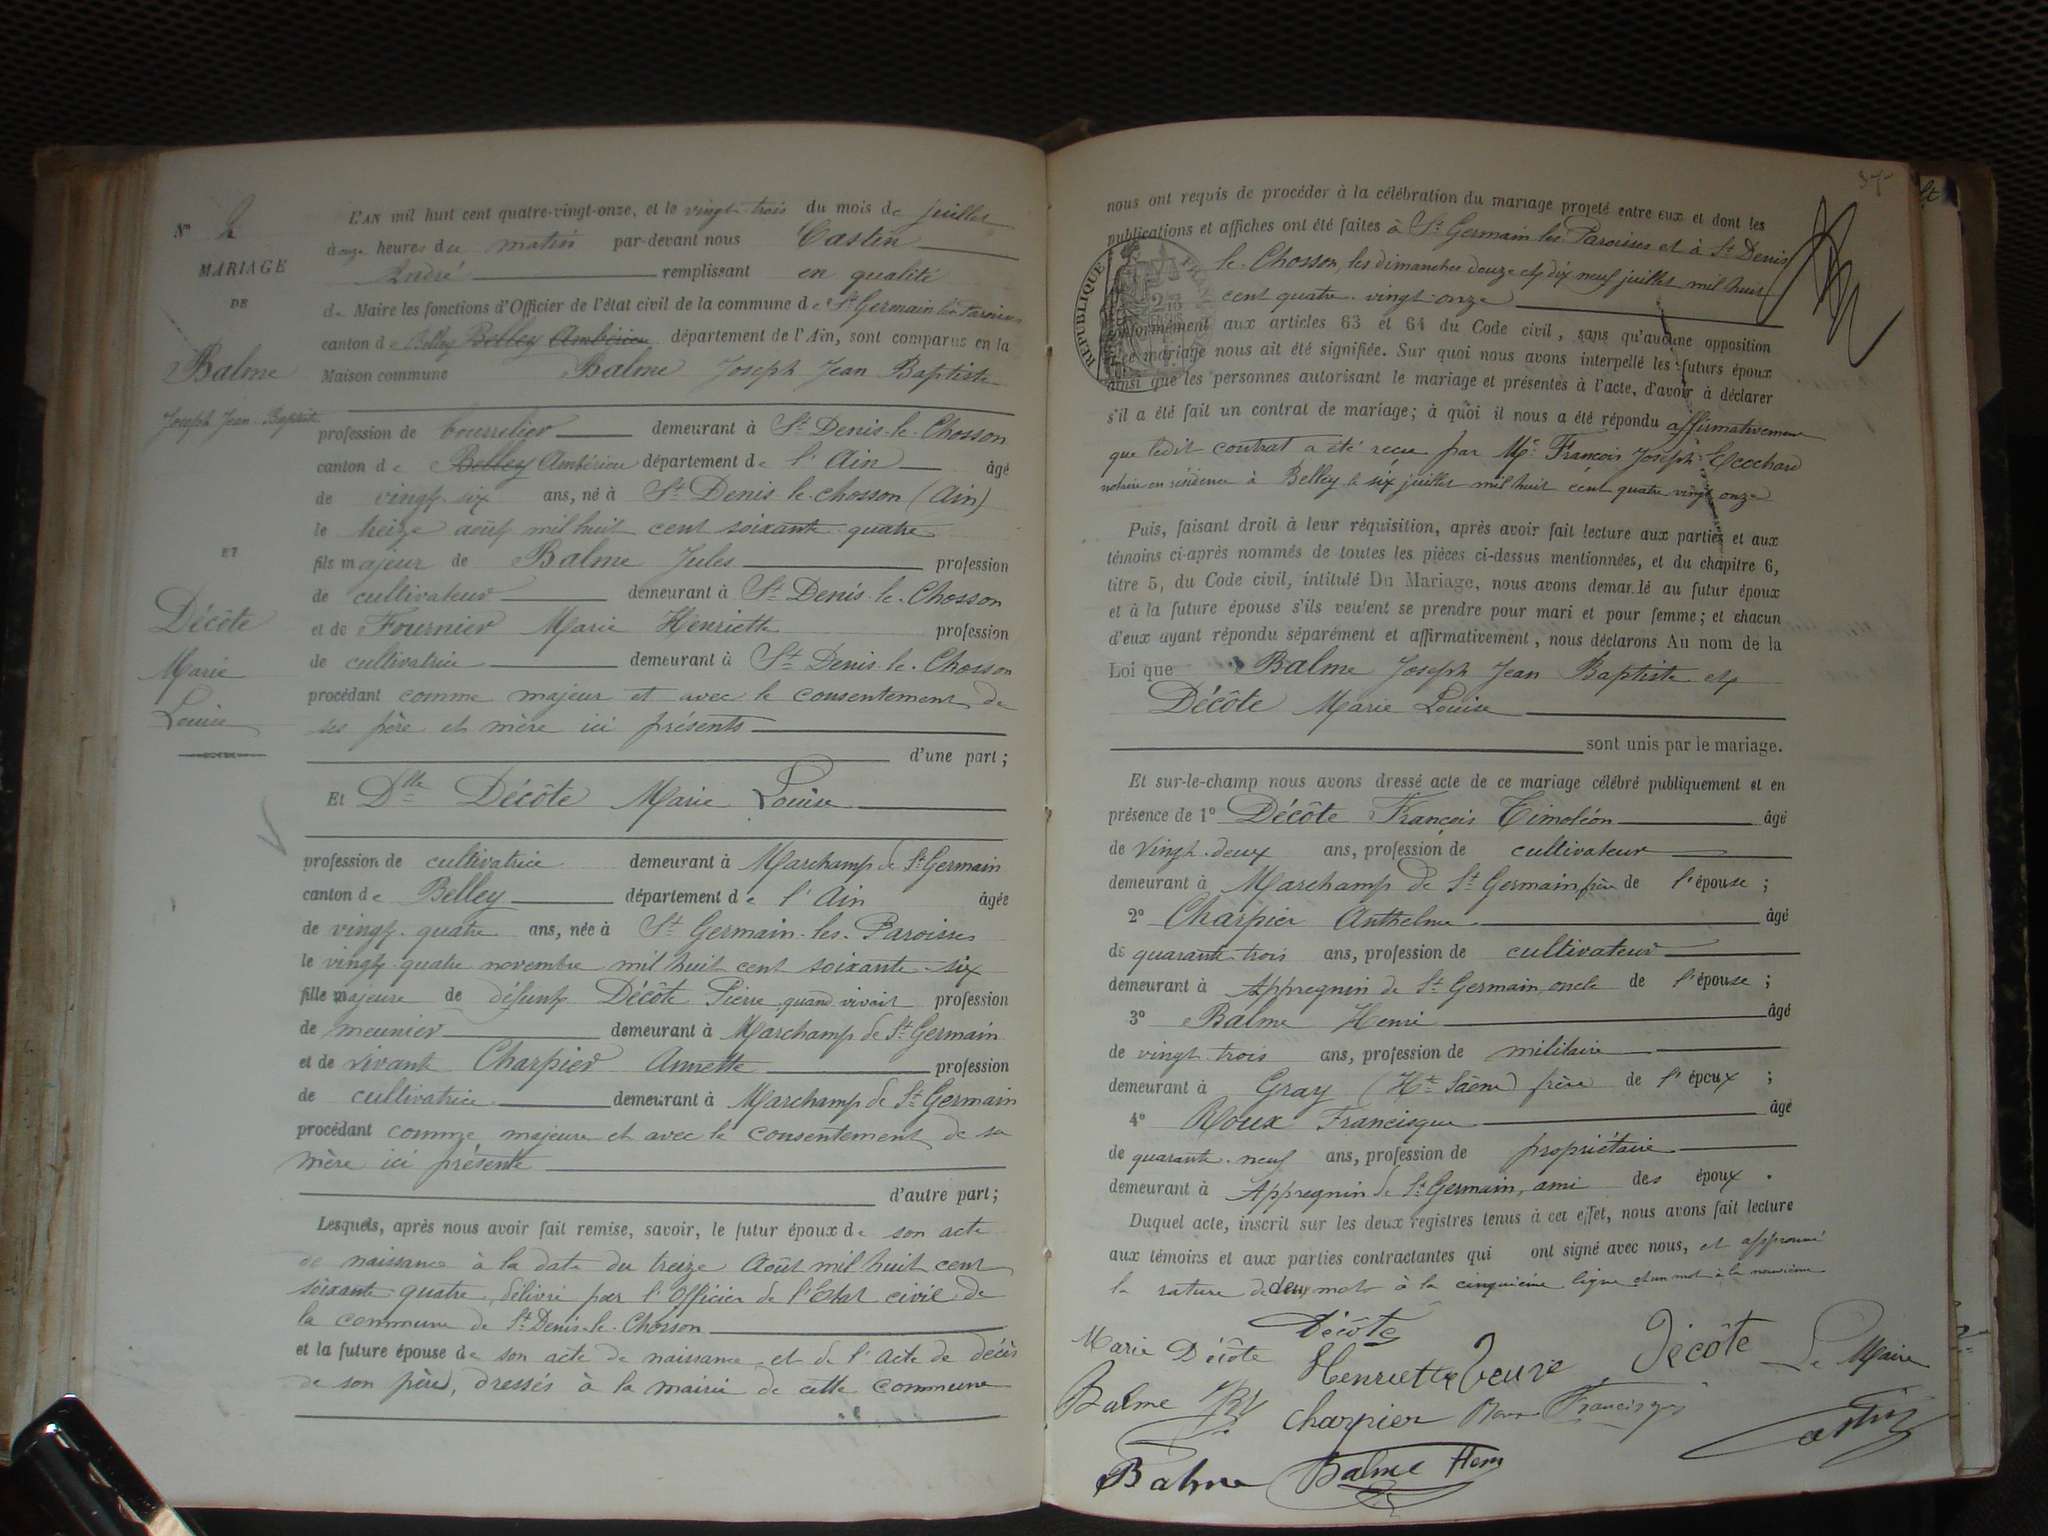 N° 2
MARIAGE
DE
Balme
Joseph Jean Baptiste
ET
Décôte
Marie
Louise
L'AN mil huit cent quatre-vingt-onze, et le vingt-trois du mois de juillet
à onze heures du matin par-devant nous Castin
André remplissant en qualité
de Maire les fonctions d'Officier de l'état civil de la commune de St Germain les Paroisses
canton de Belley Belley Ambérieu département de l'Ain, sont comparus en la
Maison commune Balme Joseph Jean Baptiste
profession de bourrelier demeurant à St Denis-le-Chosson
canton de Belley Ambérieu département de l'Ain âgé
de vingt-six ans, né à St Denis-le-Chosson (Ain)
le treize août mil huit cent soixante-quatre
fils majeur de Balme Jules profession
de cultivateur demeurant à St Denis-le-Chosson
et de Fournier Marie Henriette profession
de cultivatrice demeurant à St Denis-le-Chosson
procédant comme majeur et avec le consentement de
ses père et mère ici présents
d'une part;
Et Dlle Décôte Marie Louise
profession de cultivatrice demeurant à Marchamp de St Germain
canton de Belley département de l'Ain âgée
de vingt-quatre ans, née à St Germain-les-Paroisses
le vingt-quatre novembre mil huit cent soixante-six
fille majeure de défunt Décôte Pierre quand vivait profession
de meunier demeurant à Marchamp de St Germain
et de vivante Charpier Annette profession
de cultivatrice demeurant à Marchamp de St Germain
procédant comme majeure et avec le consentement de sa
mère ici présente
d'autre part;
Lesquels, après nous avoir fait remise, savoir, le futur époux de son acte
de naissance à la date du treize Août mil huit cent
soixante-quatre, délivré par l'Officier de l'Etat civil de
la commune de St Denis-le-Chosson
et la future épouse de son acte de naissance et de l'acte de décès
de son père, dressés à la mairie de cette commune
37
nous ont requis de procéder à la célébration du mariage projeté entre eux et dont les
publications et affiches ont été faites à St Germain les Paroisses et à St Denis
le Chosson, les dimanches douze et dix neuf juillet mil huit
cent quatre-vingt-onze
RÉPUBLIQUE
conformément aux articles 63 et 64 du Code civil, sans qu'aucune opposition
à ce mariage nous ait été signifiée. Sur quoi nous avons interpellé les futurs époux
ainsi que les personnes autorisant le mariage et présentes à l'acte, d'avoir à déclarer
s'il a été fait un contrat de mariage; à quoi il nous a été répondu affirmativement
que ledit contrat a été recu par Me François Joseph Ecochard
notaire en résidence à Belley le six juillet mil huit cent quatre vingt onze
Puis, faisant droit à leur réquisition, après avoir fait lecture aux parties et aux
témoins ci-après nommés de toutes les pièces ci-dessus mentionnées, et du chapitre 6,
titre 5, du Code civil, intitulé Du Mariage, nous avons demandé au futur époux
et à la future épouse s'ils veulent se prendre pour mari et pour femme; et chacun
d'eux ayant répondu séparément et affirmativement, nous déclarons Au nom de la
Loi que Balme Joseph Jean Baptiste et
Décôte Marie Louise
sont unis par le mariage.
Et sur-le-champ nous avons dressé acte de ce mariage célébré publiquement et en
présence de 1° Décôte François Timoléon âgé
de vingt-deux ans, profession de cultivateur
demeurant à Marchamp de St Germain, frère de l'épouse;
2° Charpier Anthelme âgé
de quarante-trois ans, profession de cultivateur
demeurant à Appregnin de St Germain, oncle de l'épouse;
3° Balme Henri âgé
de vingt-trois ans, profession de militaire
demeurant à Gray (Hte Saône) frère de l'époux;
4° Roux Francisque âgé
de quarante-neuf ans, profession de propriétaire
demeurant à Appregnin de St Germain, ami des époux.
Duquel acte, inscrit sur les deux registres tenus à cet effet, nous avons fait lecture
aux témoins et aux parties contractantes qui ont signé avec nous, et approuvé
la rature de deux mots à la cinquième ligne et un mot à la neuvième
Marie Décôte Décôte Décôte Le Maire
Balme Henriette
Charpier Roux Francisque Castin
Balme Balme Henri